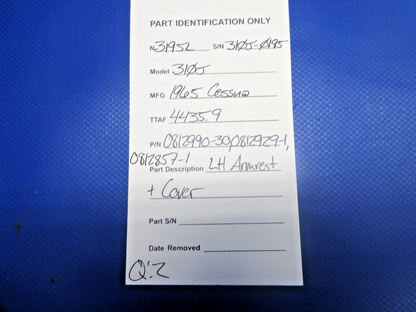 PART IDENTIFICATION ONLY
N 3195L S/N 310J-0195
Model 310J
MFG 1965 Cessna
TTAF 4435.9
P/N 0812990-30,0812929-1,
0812857-1
Part Description LH Armrest
+ Cover
Part S/N
Date Removed
Q:2